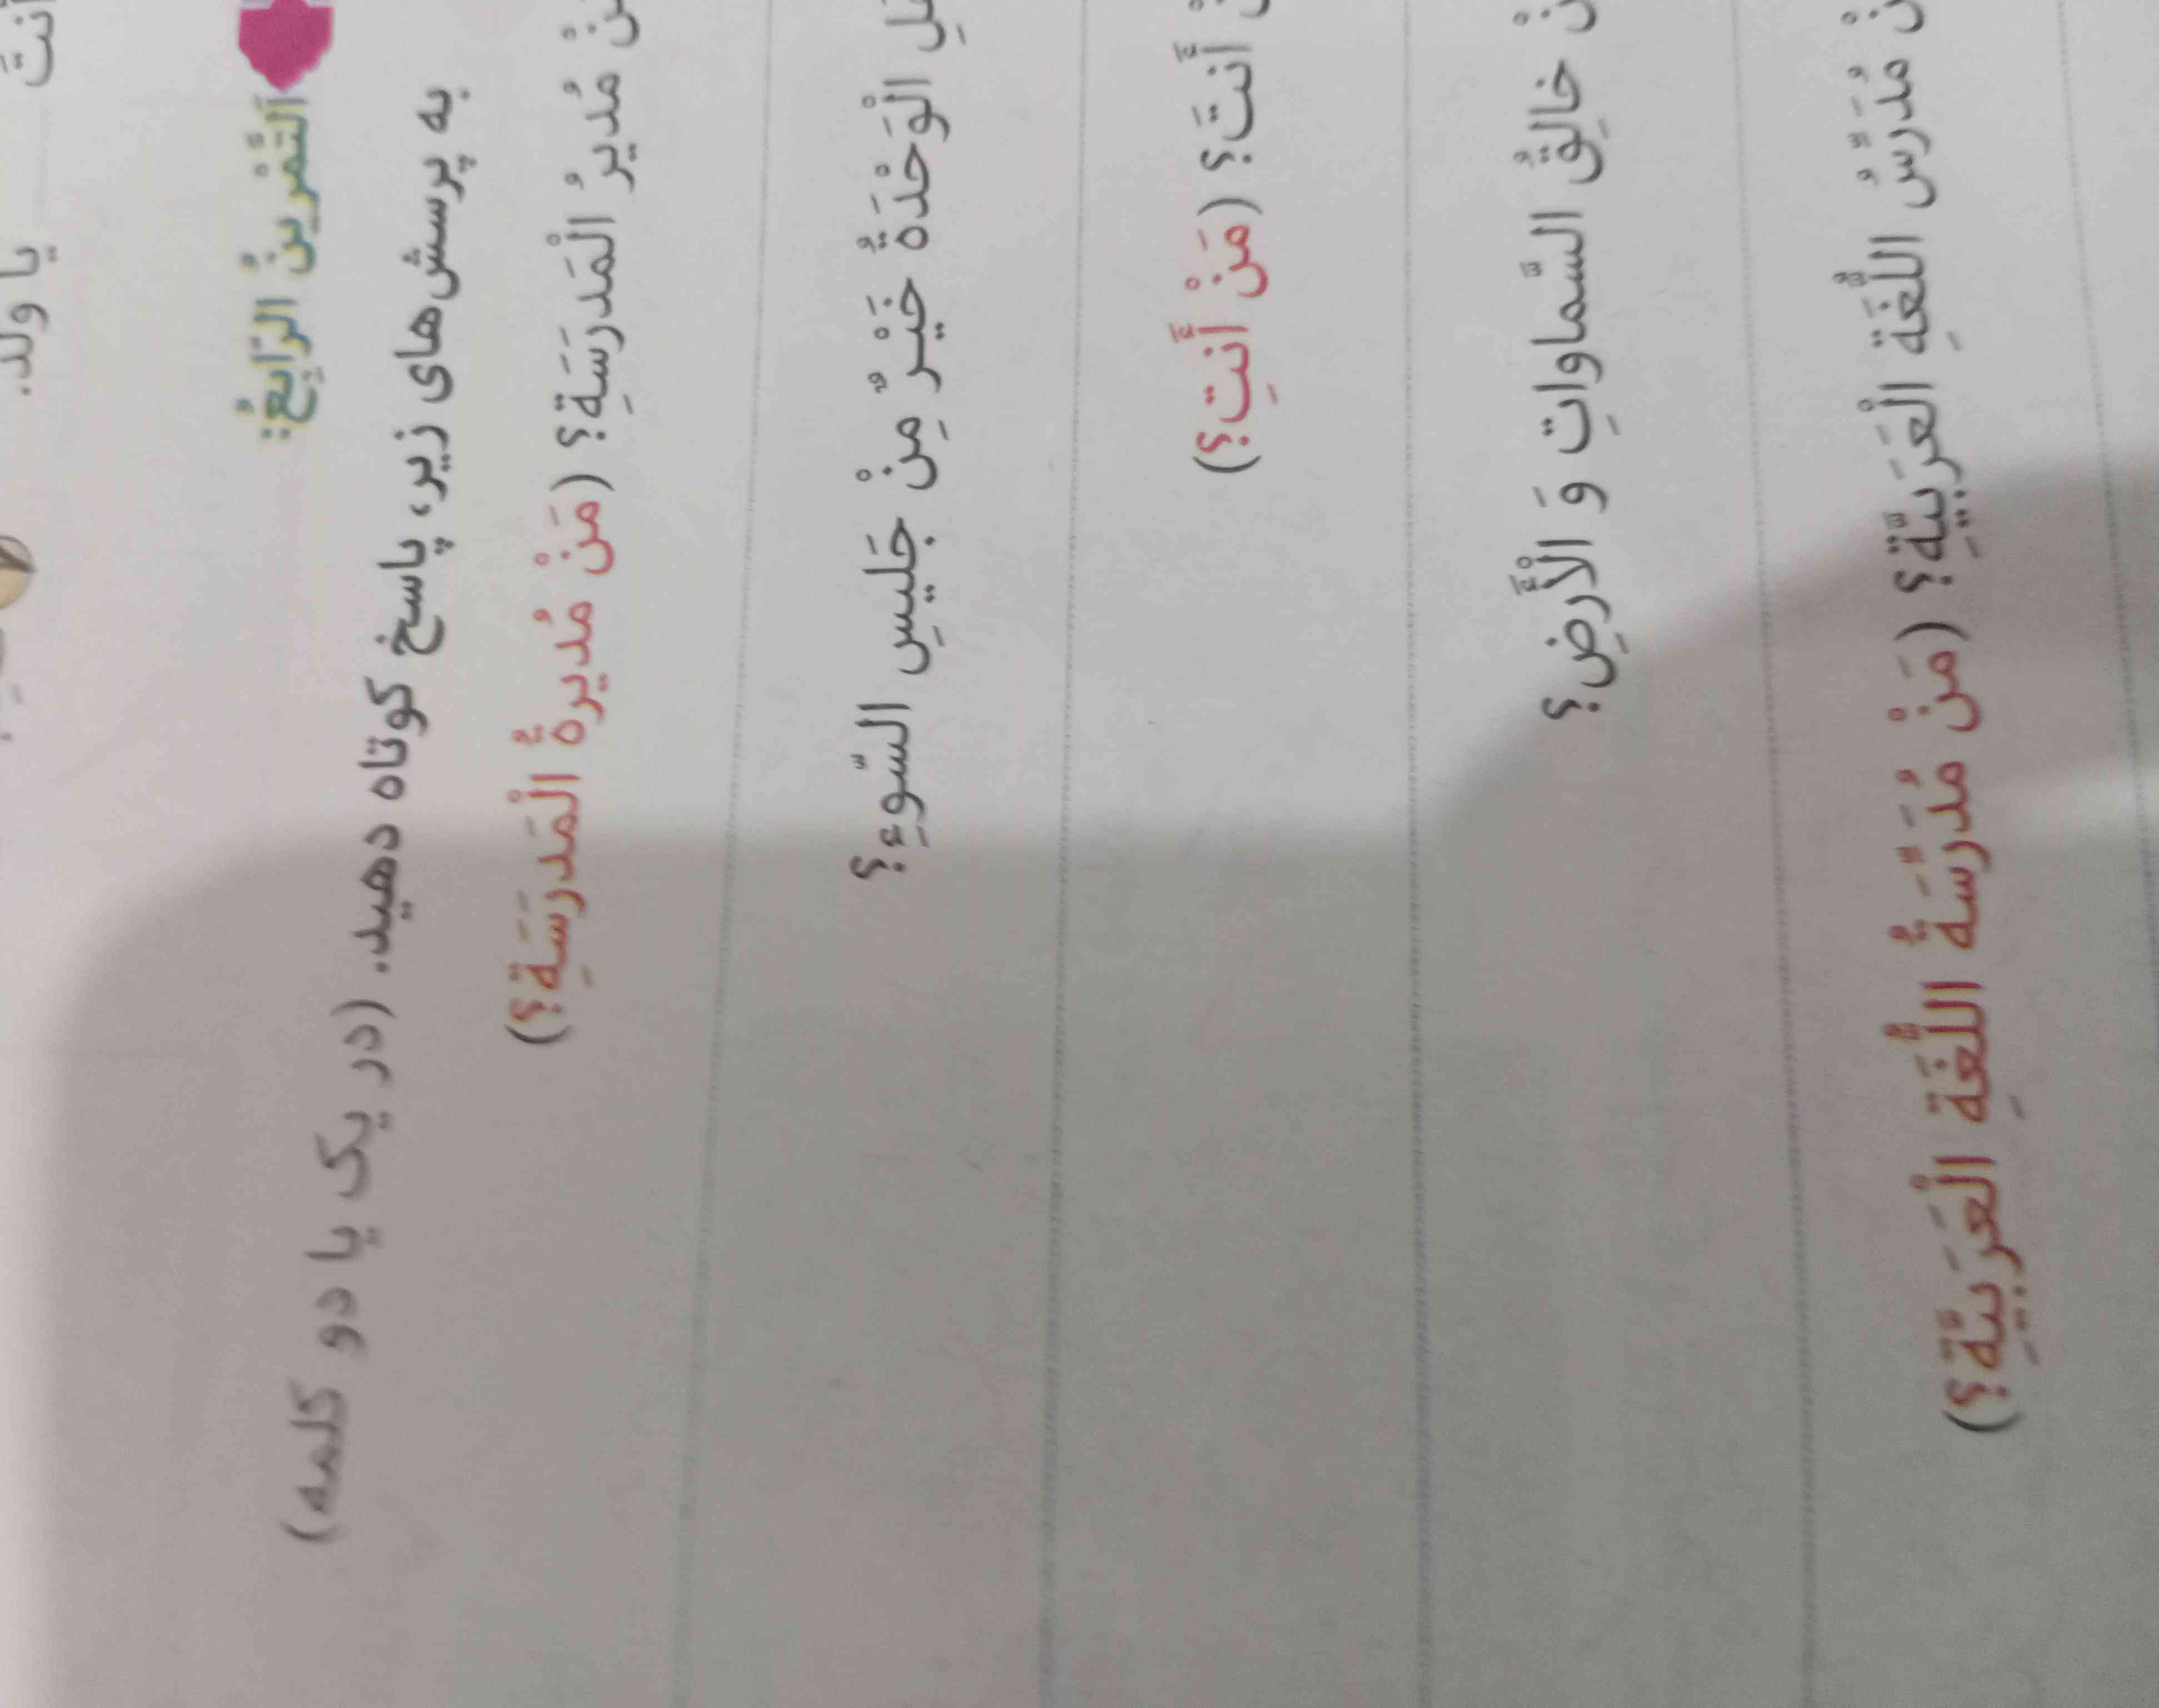 أنتَ یا ولد.
اَلتَّمْرینُ الرّابِعُ:
به پرسش‌های زیر، پاسخ کوتاه دهید. (در یک یا دو کلمه)
مُدیرُ الْمَدرَسَةِ؟ (مَنْ مُدیرةُ الْمَدرَسَةِ؟)
الْوَحْدَةُ خَیْرٌ مِنْ جَلیسِ السّوءِ؟
أَنتَ؟ (مَنْ أَنتِ؟)
خالِقُ السَّماواتِ وَ الْأَرضِ؟
مُدَرِّسُ اللُّغَةِ الْعَرَبیَّةِ؟ (مَنْ مُدَرِّسَةُ اللُّغَةِ الْعَرَبیَّةِ؟)